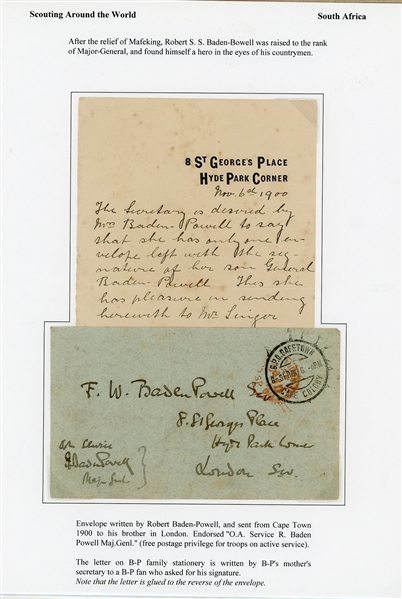 Scouting Around the World
South Africa
After the relief of Mafeking, Robert S. S. Baden-Bowell was raised to the rank
of Major-General, and found himself a hero in the eyes of his countrymen.
8 ST GEORGE'S PLACE
HYDE PARK CORNER
Nov. 6th 1900
The Secretary is desired by
Mrs Baden-Powell to say
that she has only one en-
velope left with the sig-
nature of her son General
Baden-Powell This she
has pleasure in sending
herewith to Mr Singer
G.P.O. CAPETOWN
CAPE COLONY
F. W. Baden Powell
8. St Georges Place
Hyde Park Corner
London SW.
Service
R Baden Powell
Maj Genl
Envelope written by Robert Baden-Powell, and sent from Cape Town
1900 to his brother in London. Endorsed "O.A. Service R. Baden
Powell Maj.Genl." (free postage privilege for troops on active service).
The letter on B-P family stationery is written by B-P's mother's
secretary to a B-P fan who asked for his signature.
Note that the letter is glued to the reverse of the envelope.